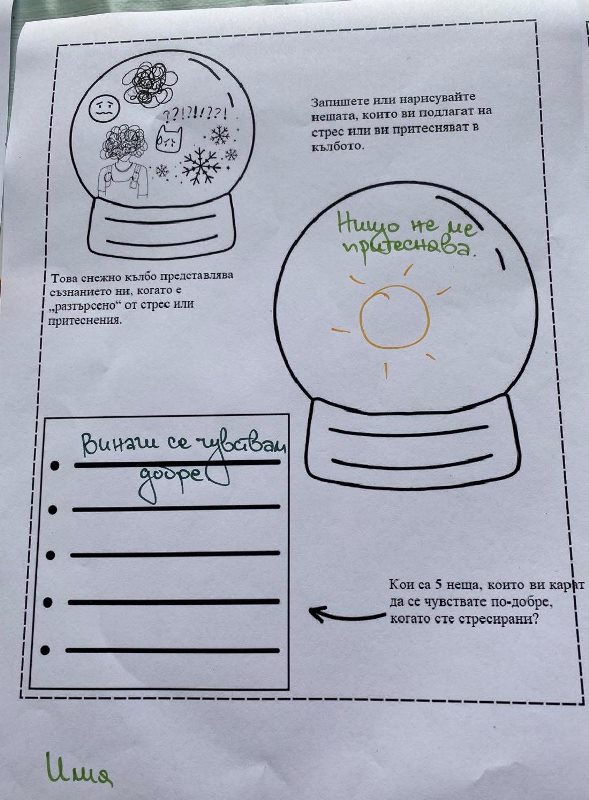 ??!?!!??!
Запишете или нарисувайте
нещата, които ви подлагат на
стрес или ви притесняват в
кълбото.
Нищо не ме
притеснава.
Това снежно кълбо представлява
съзнанието ни, когато е
„разтърсено“ от стрес или
притеснения.
Винаги се чувствам
добре
Кои са 5 неща, които ви карат
да се чувствате по-добре,
когато сте стресирани?